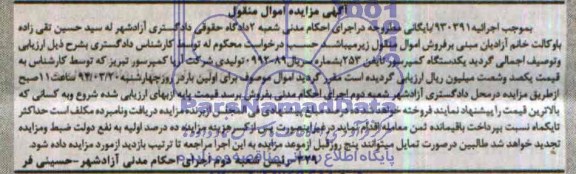 آگهی مزایده اموال منقول
بموجب اجرائیه ۹۳۰۳۹۱/بایگانی مطروحه دراجرای احکام مدنی شعبه ۲ دادگاه حقوقی دادگستری آزادشهر له سید حسین تقی زاده
باوکالت خانم آزادیان مبنی برفروش اموال منقول زیر میباشد حسب درخواست محکوم له توسط کارشناس دادگستری بشرح ذیل ارزیابی
وتوصیف اجمالی گردید یکدستگاه کمپرسور تولیدی شرکت آریا کمپرسور تبریز که توسط کارشناس به
قیمت یکصد وشصت میلیون ریال ارزیابی گردیده است مقرر گردید اموال موصوف برای اولین بار در روز چهارشنبه ۹۴/۰۳/۲۰ ساعت ۱۱ صبح
ازطریق مزایده درمحل دادگستری آزادشهر شعبه دوم اجرای احکام مدنی بفروش برسد قیمت پایه ازبهای ارزیابی شده شروع وبه کسانی که
بالاترین قیمت را پیشنهاد نمایند فروخته خواهد شد ده درصد فی المجلس ازبرنده مزایده دریافت ونامبرده مکلف است حداکثر
تایکماه نسبت بپرداخت باقیمانده ثمن معامله اقدام نماید درغیراینصورت ده درصد اولیه به نفع دولت ضبط ومزایده
تجدید خواهد شد طالبین درصورت تمایل میتوانند پنج روز قبل ازموعد مزایده به این اجرا مراجعه تا ترتیب بازدید ازمورد مزایده داده شود.
رئیس شعبه دوم اجرای احکام مدنی آزادشهر-حسینی فر
ParsNamadData
پایگاه اطلاع رسانی مناقصه و مزایده